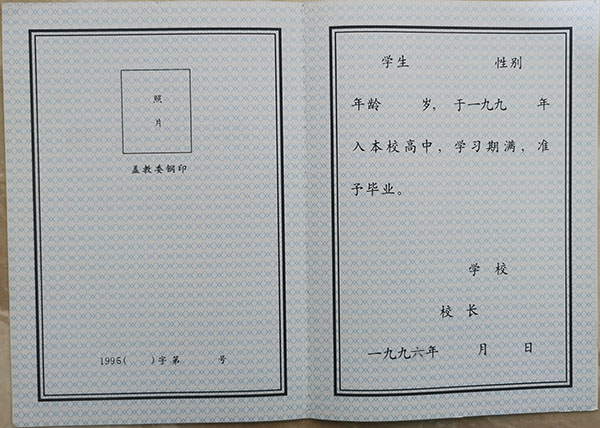 照
片
盖教委钢印
1996( )字第 号
学生 性别
年龄 岁，于一九九 年
入本校高中，学习期满，准
予毕业。
学 校
校 长
一九九六年 月 日